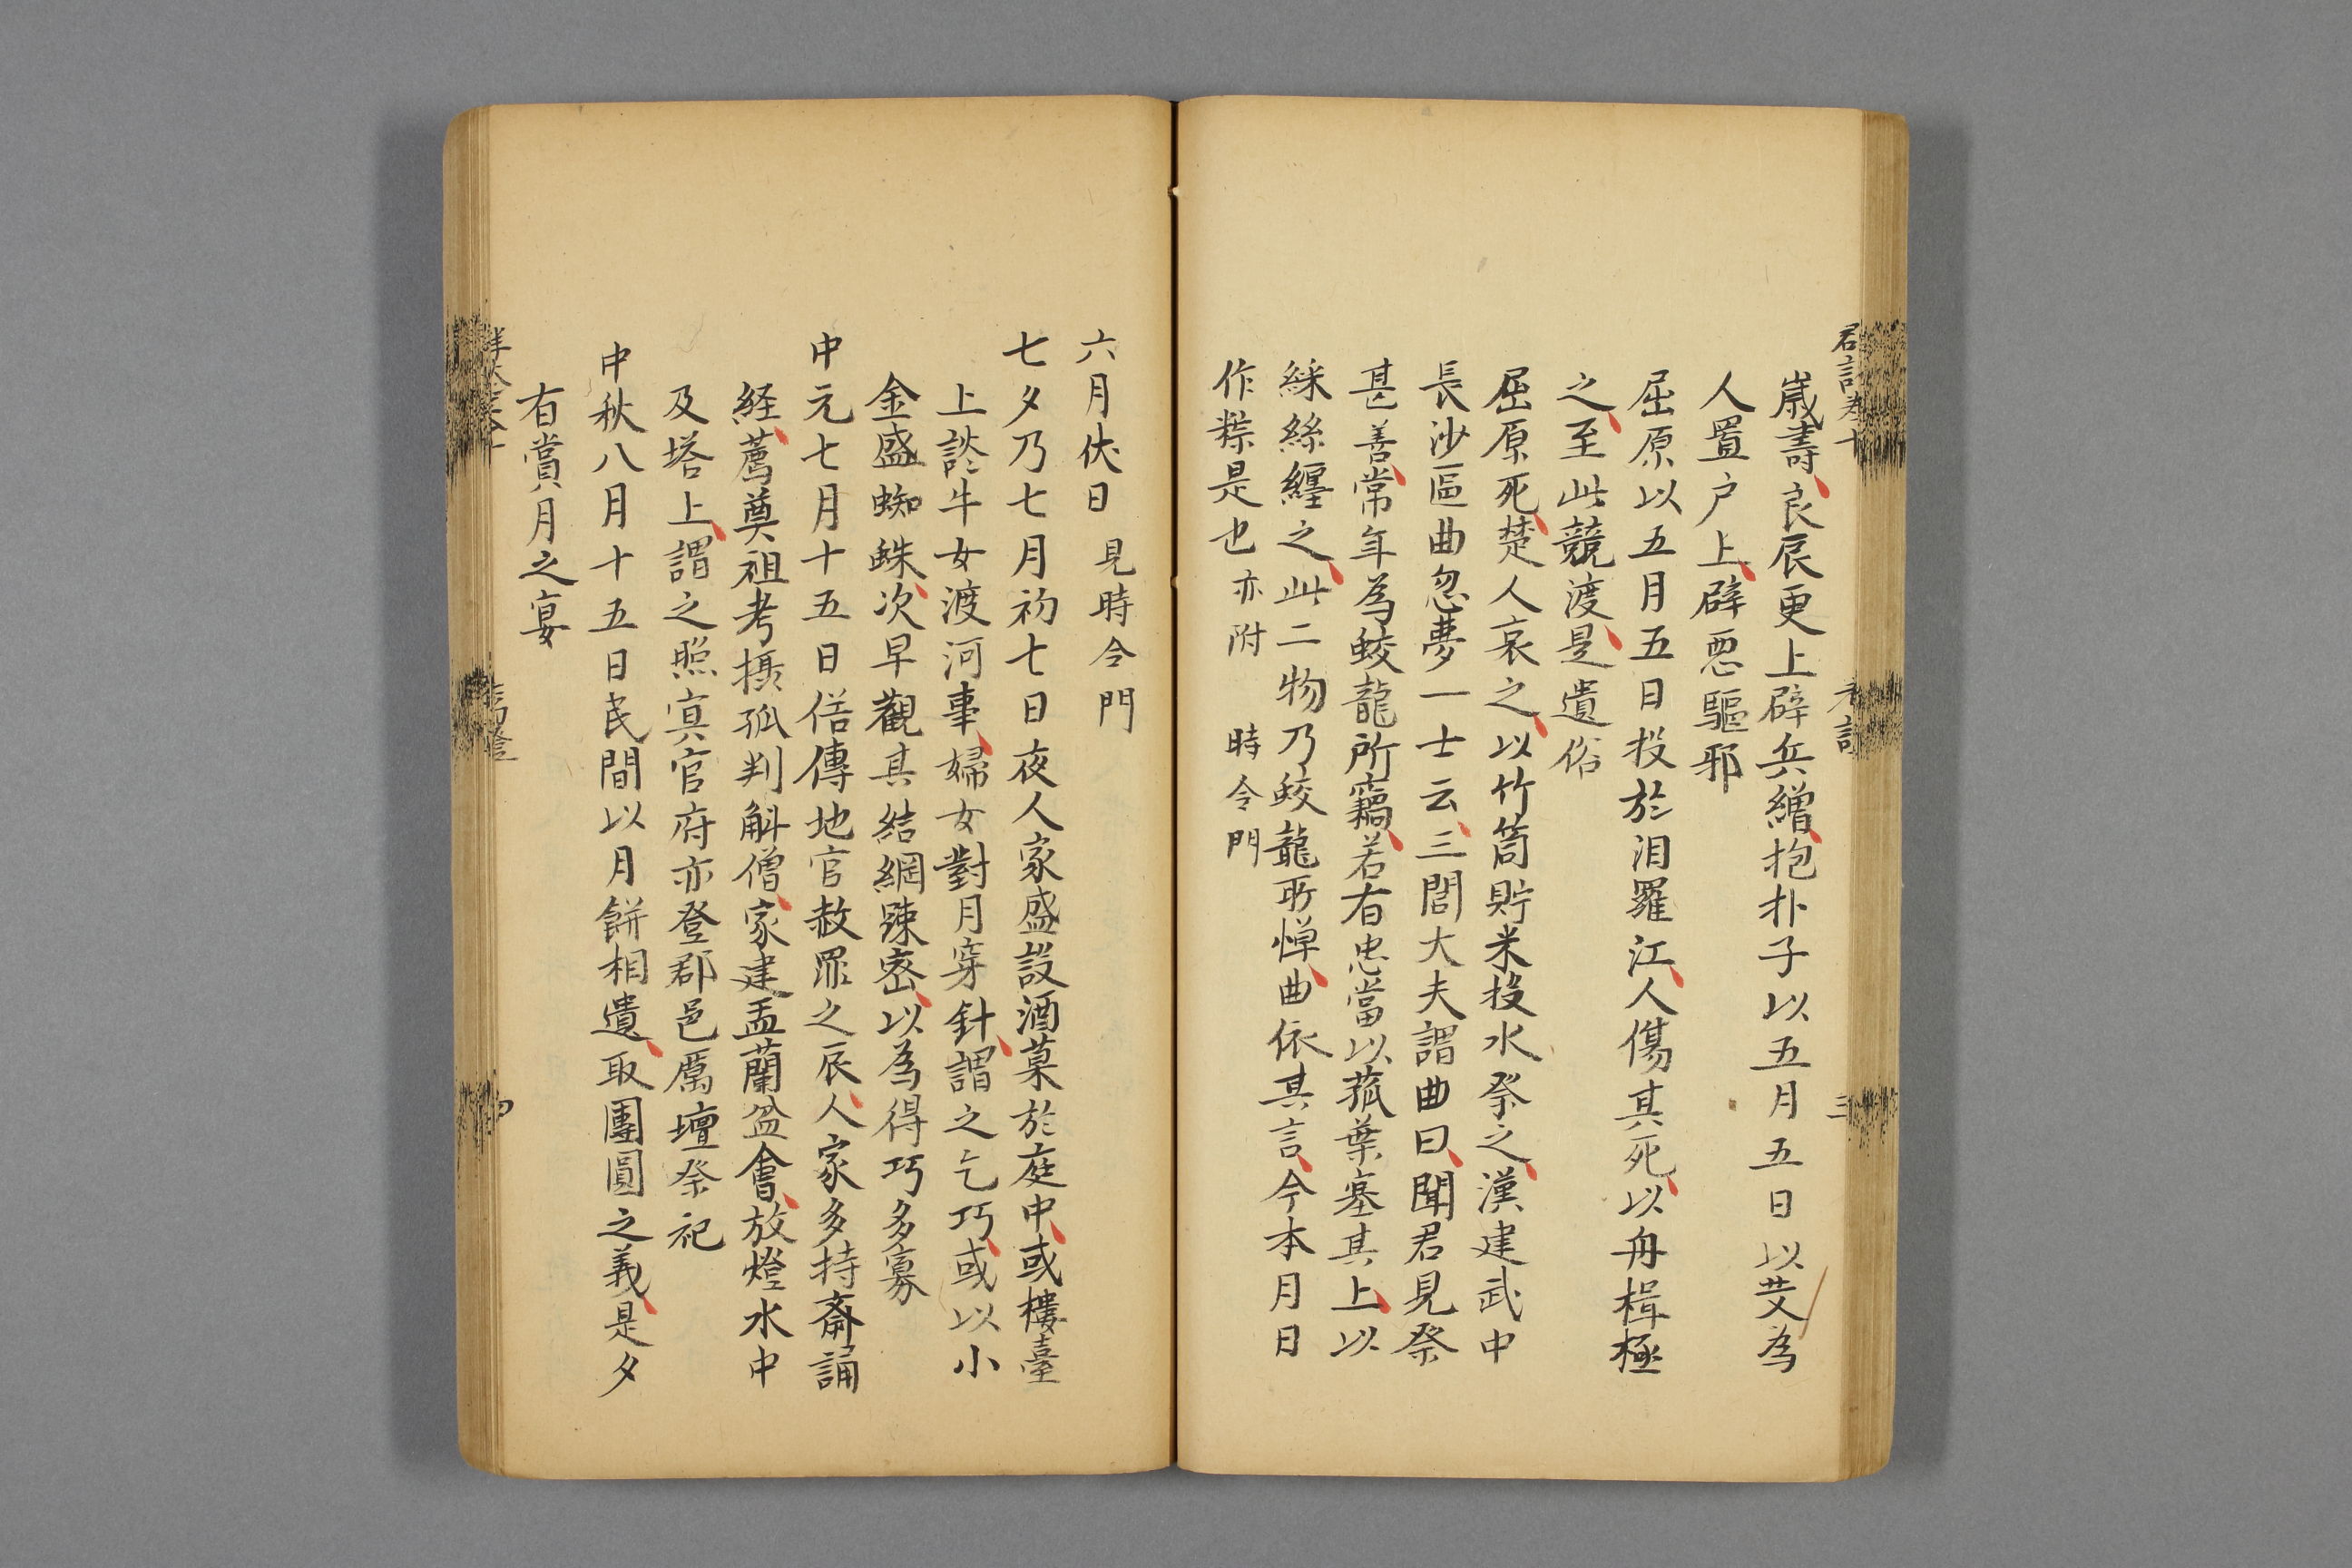 歳壽良辰更上辟兵繒抱朴子以五月五日以艾為
人置户上辟惡驅邪
屈原以五月五日投於汨羅江人傷其死以舟楫極
之至此競渡是遺俗
屈原死楚人哀之以竹筒貯米投水祭之漢建武中
長沙區曲忽夢一士云三閭大夫謂曲曰聞君見祭
甚善常年為蛟龍所竊若有忠當以菰葉塞其上以
綵絲纏之此二物乃蛟龍所憚曲依其言今本月日
作粽是也亦附 時令門
六月伏日 見時令門
七夕乃七月初七日夜人家盛設酒菓於庭中或樓臺
上談牛女渡河事婦女對月穿針謂之乞巧或以小
金盛蜘蛛次早觀其結網踈密以為得巧多寡
中元七月十五日俗傳地官赦罪之辰人家多持齋誦
経薦奠祖考攝孤判斛僧家建盂蘭盆會放燈水中
及塔上謂之照㝠官府亦登郡邑厲壇祭祀
中秋八月十五日民間以月餅相遺取團圓之義是夕
有賞月之宴